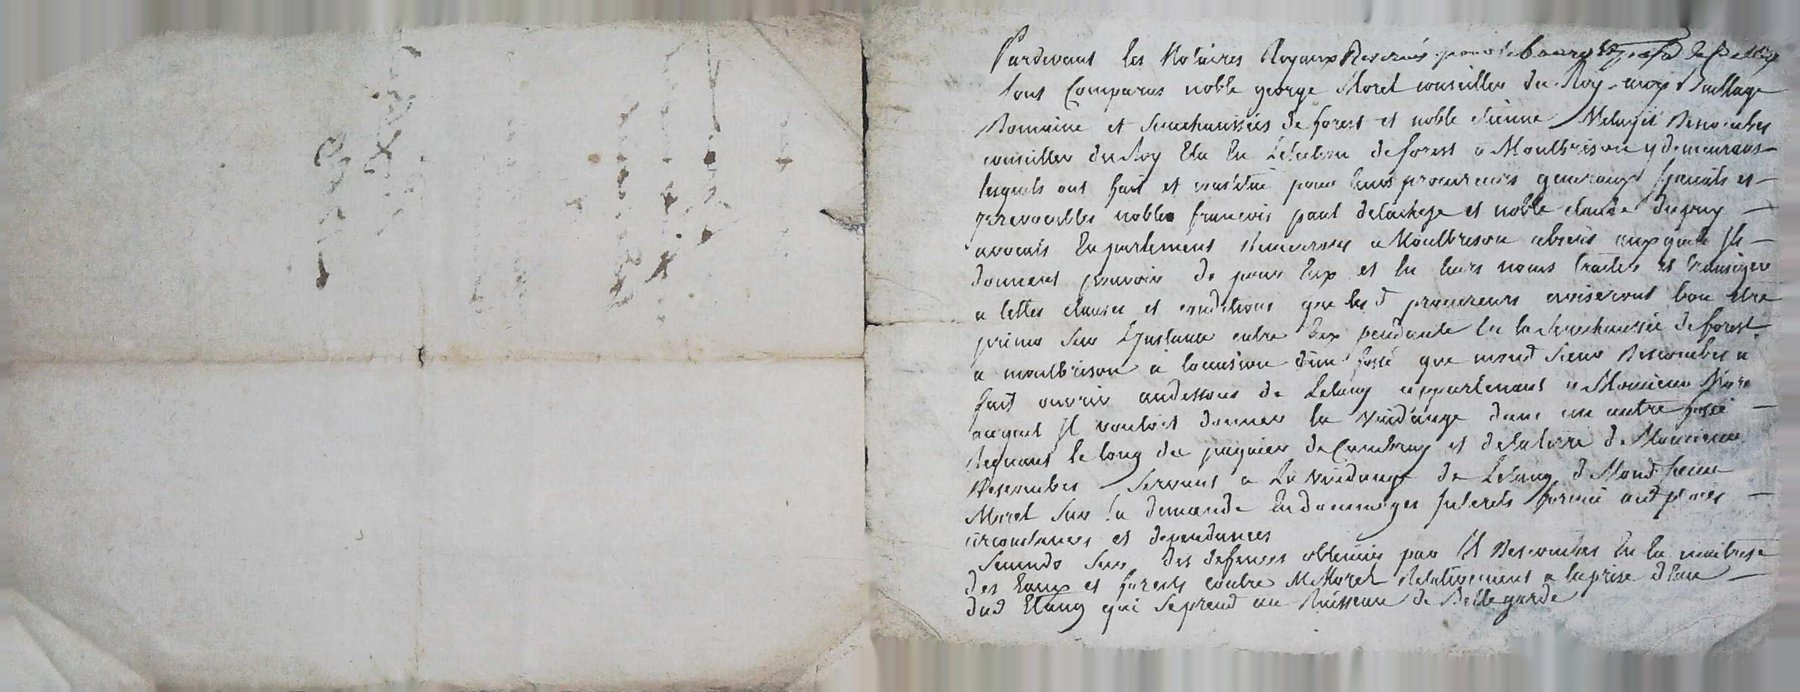 Pardevant les Notaires Royaux Reservés pour le bourg
sont Comparus noble george Morel conseiller du Roy aux Bailliage
Domaine et Senechaussées de forest et noble Etienne Descombes
conseiller du Roy Elu En Lelection de forest a Montbrison y demeurans
lesquels ont fait et constitué pour leurs procureurs generaux speciaux et
Irrevocables nobles francois paul delachaze et noble claude dupuy
avocats En parlement demeurans a Montbrison absens auxquels Ils
donnent pouvoir de pour Eux et En leurs noms traiter et transiger
a telles clauses et conditions que lesd procureurs aviseront bon Etre
primo Sur L'Instance entre Eux pendante En la Senechaussée de forest
a montbrison a loccasion d'un fossé que mond Sieur Descombes a
fait ouvrir audessous de Letang appartenant a Monsieur More
auquel Il vouloit donner la Vuidange dans un autre fossé
Regnant le long du paquier de et delaterre de Monsieur
Descombes Servant a La Vuidange de Letang de Mond Sieur
Morel Sur la demande En dommages Interets formée
circonstances et dependances
Secundo Sur des defences obtenues par Mr Descombes En la maitrise
des Eaux et forests contre Mr Morel Relativement a laprise d'Eau
dud Etang qui Seprend au Ruisseau de Bellegarde